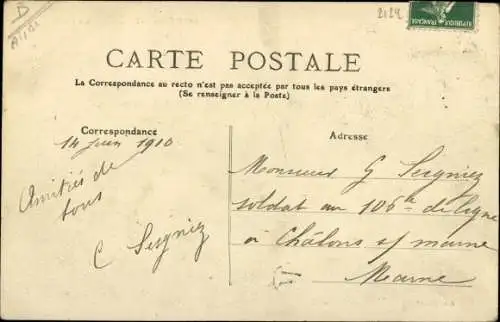 B
2124
RÉPUBLIQUE FRANÇAISE
CARTE POSTALE
La Correspondance au recto n'est pas acceptée par tous les pays étrangers
(Se renseigner à la Poste)
Correspondance
14 Juin 1910
Amitiés de
tous
C Sergniez
Adresse
Monsieur G Sergniez
soldat au 106e de ligne
à Châlons s/ marne
Marne